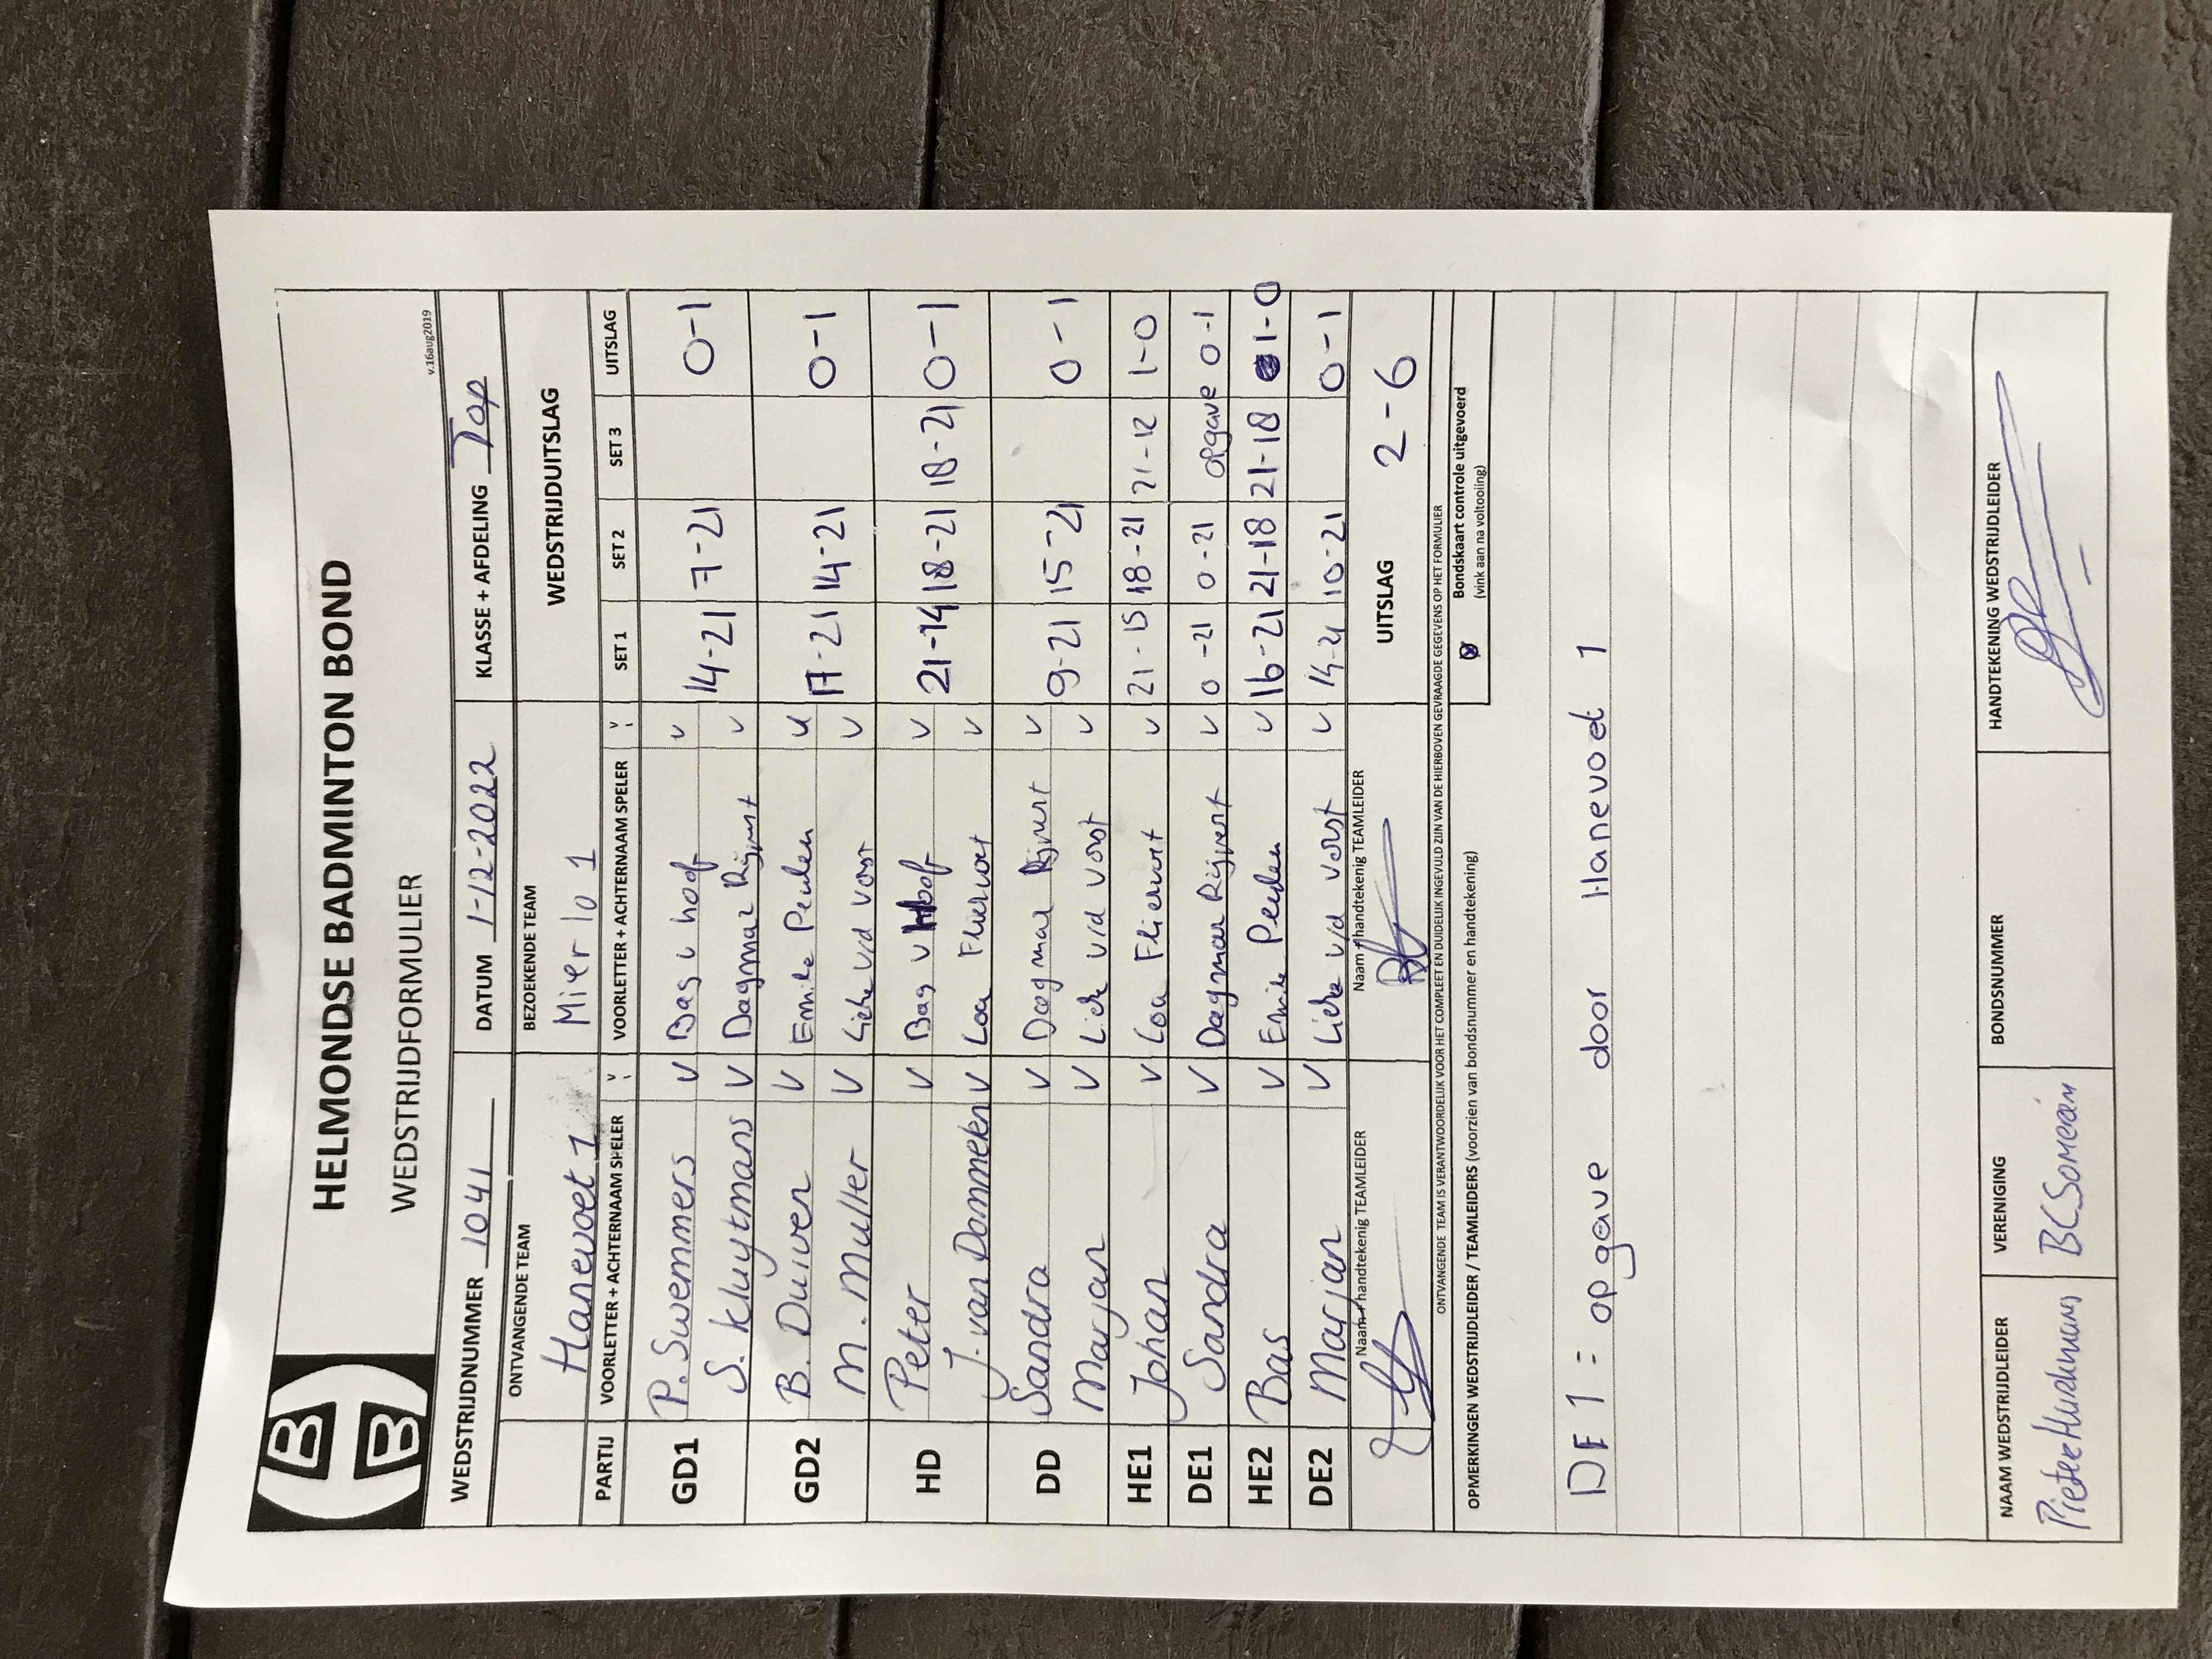 HELMONDSE BADMINTON BOND
WEDSTRIJDFORMULIER
v.16aug2019
WEDSTRIJDNUMMER 1041 DATUM 1-12-2022 KLASSE + AFDELING Top
ONTVANGENDE TEAM BEZOEKENDE TEAM WEDSTRIJDUITSLAG
Hanevoet 1 Mierlo 1
PARTIJ VOORLETTER + ACHTERNAAM SPELER V VOORLETTER + ACHTERNAAM SPELER V SET 1 SET 2 SET 3 UITSLAG
GD1 P. Swemmers V Bas v hoof v 14-21 7-21 0-1
S. Kluytmans V Dagmar Rijvert v
GD2 B. Duiven V Emile Peulen v 17-21 14-21 0-1
M. Muller V Lieke v/d Vorst v
HD Peter V Bas v Hoof v 21-14 18-21 18-21 0-1
J. van Dommelen V Loa Fliervoet v
DD Sandra V Dagmar Rijvert v 9-21 15-21 0-1
Marjan V Liek v/d Vorst v
HE1 Johan V Loa Fliervoet v 21-15 18-21 21-12 1-0
DE1 Sandra V Dagmar Rijvert v 0-21 0-21 opgave 0-1
HE2 Bas V Emile Peulen v 16-21 21-18 21-18 1-0
DE2 Marjan V Lieke v/d Vorst v 14-21 10-21 0-1
Naam + handtekenig TEAMLEIDER Naam + handtekenig TEAMLEIDER UITSLAG 2-6
ONTVANGENDE TEAM IS VERANTWOORDELIJK VOOR HET COMPLEET EN DUIDELIJK INGEVULD ZIJN VAN DE HIERBOVEN GEVRAAGDE GEGEVENS OP HET FORMULIER
OPMERKINGEN WEDSTRIJDLEIDER / TEAMLEIDERS (voorzien van bondsnummer en handtekening)
Bondskaart controle uitgevoerd
(vink aan na voltooling)
DE1 = opgave door Hanevoet 1
NAAM WEDSTRIJDLEIDER VERENIGING BONDSNUMMER HANDTEKENING WEDSTRIJDLEIDER
BC Someren